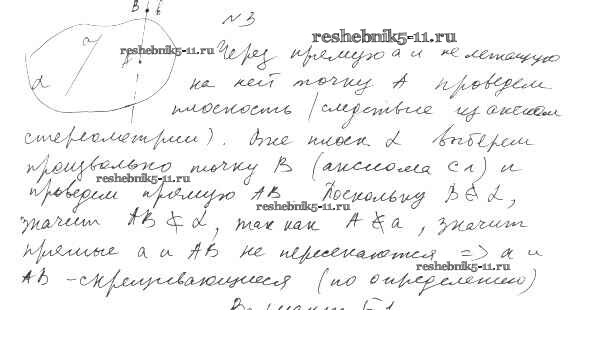 B b
N 3
reshebnik5-11.ru
α reshebnik5-11.ru Через прямую a и не лежащую
на ней точку A проведем
плоскость (следствие из аксиом
стереометрии). Вне плоск. α выберем
произвольно точку B (аксиома C1) и
reshebnik5-11.ru
проведем прямую AB Поскольку B ∉ α,
reshebnik5-11.ru
значит AB ⊄ α, так как A ∉ a, значит
прямые a и AB не пересекаются => a и
reshebnik5-11.ru
AB - скрещивающиеся (по определению)